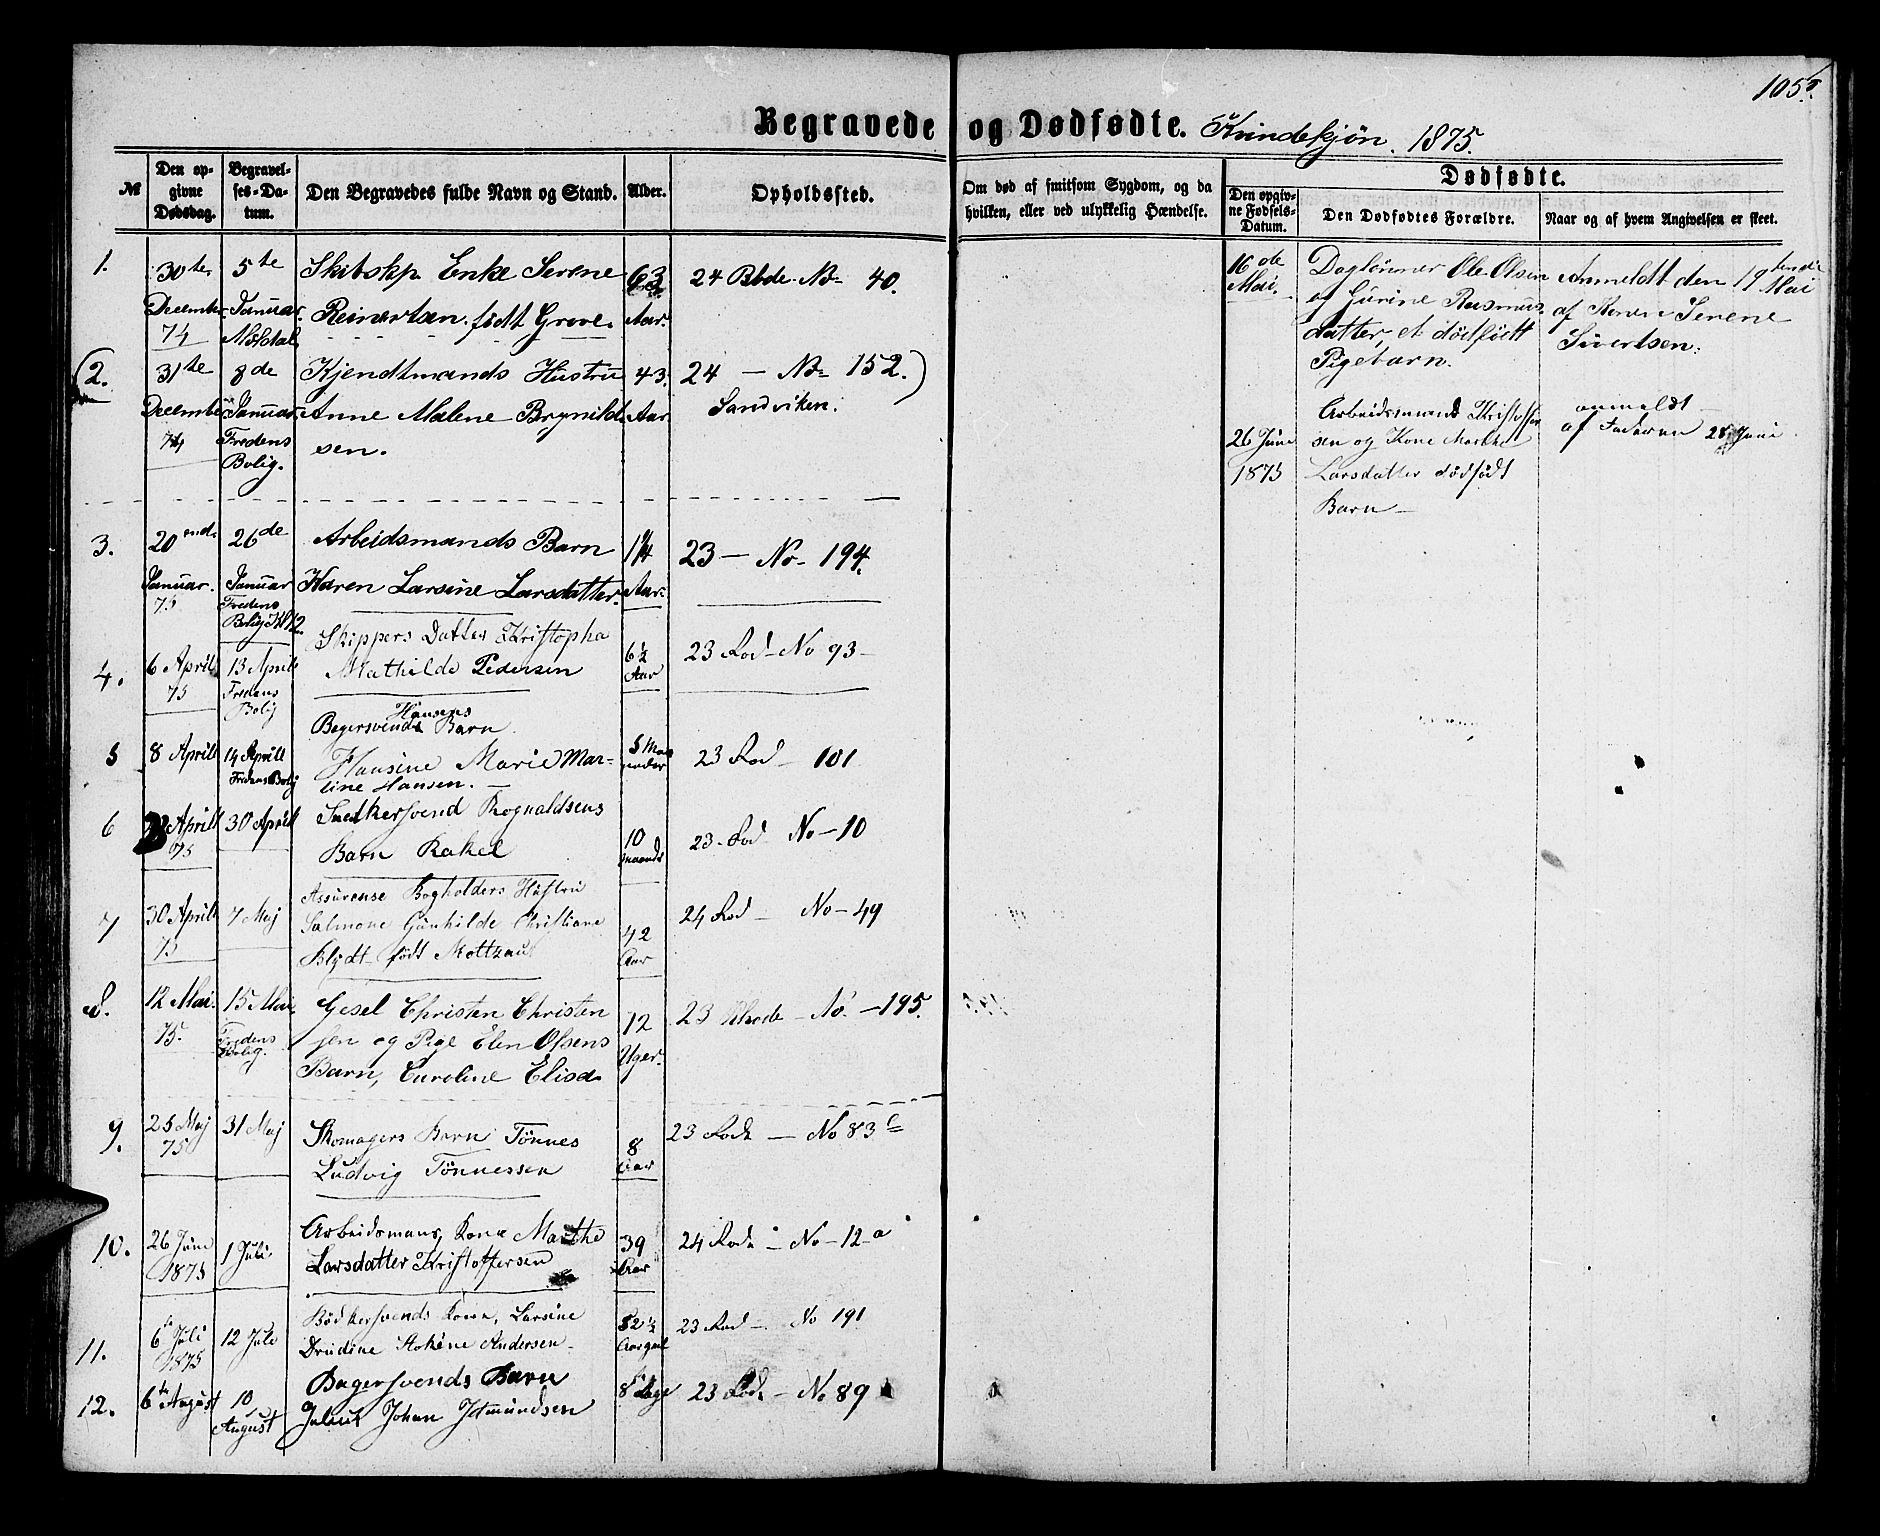 105.
Begravede og Dødfødte. Kvindekjøn. 1875.
№
Den opgivne Dødsdag.
Begravelses-Datum.
Den Begravedes fulde Navn og Stand.
Alder.
Opholdssted.
Om død af smitsom Sygdom, og da
hvilken, eller ved ulykkelig Hændelse.
Dødfødte.
Den opgivne Fødsels-Datum.
Den Dødfødtes Forældre.
Naar og af hvem Angivelsen er skeet.
1. 30te 5te Enke Serene 63 24 Rode No 40.
December Januar Reinertsen. født Greve. Aar.
74 Møldal
2. 31te 8de Kjendtmands Hustru 43. 24 — No 152.)
December Januar. Anne Malene Brynild Aar. Sandviken.
74 Fredens sen.
Bolig.
3. 20nde 26de Arbeidsmands Barn 1¼ 23 — No 194.
Januar. Januar Karen Larsine Larsdatter. Aar.
75 Fredens
Bolig
Skippers Datter Kristopha
4. 6 April 13 April Mathilde Pedersen 6½ Aar 23 Rod — No 93 —
75 Fredens
Bolig
Hansens
Bagersvends Barn
5 8 April 14 April Hansine Marie Mar- 5 Maaneder 23 Rod — 101
Fredens Bolig tine Hansen. —
6 April 30 April Snedkersvend Rognaldsens
75 Barn Rakel 10 maaneds 23. Rod No — 10
Assurense Bogholders Hustru
7 30 April 7 Maj Salmone Gunhilde Christiane 42 Aar 24 Rod — No — 49
75 Blydt født Moltzau
8. 12 Mai. 15 Mai Gesel Christen Christen 12 23 Rhode — No. — 195.
75. Fredens sen og Pige Elen Olsens Uger.
Bolig. Barn, Caroline Elisa
9. 25 Maj 31 Maj Skomagers Barn Tønnes 8 Aar 23 Rode — No 83
75 Ludvig Tønnessen
10. 26 June 1 Juli Arbeidsmans, Kone Marthe 39 Aar 24 Rode — No — 12 a
1875 Larsdatter Kristoffersen
Bødkersvends Kone, Larsine
11. 6te Juli 12 Juli Andersen 52½ Aar gml 23 Rod — No 191
1875
12. 6te August 10 August Bagersvends Barn 8 Dage 23 Rode — No 89
Julius Johan
16de Dagløner Ole Olsen Anmeldt den 19
Mai. og Gurine Rasmus- af Konen Serene Mai
datter, et dødfødt Sivertsen.
Pigebarn.
Arbeidsmand Kristoffer anmeldt
26 June sen og Kone Marthe af Faderen 28 Juni
1875 Larsdatter dødfødt
Barn —